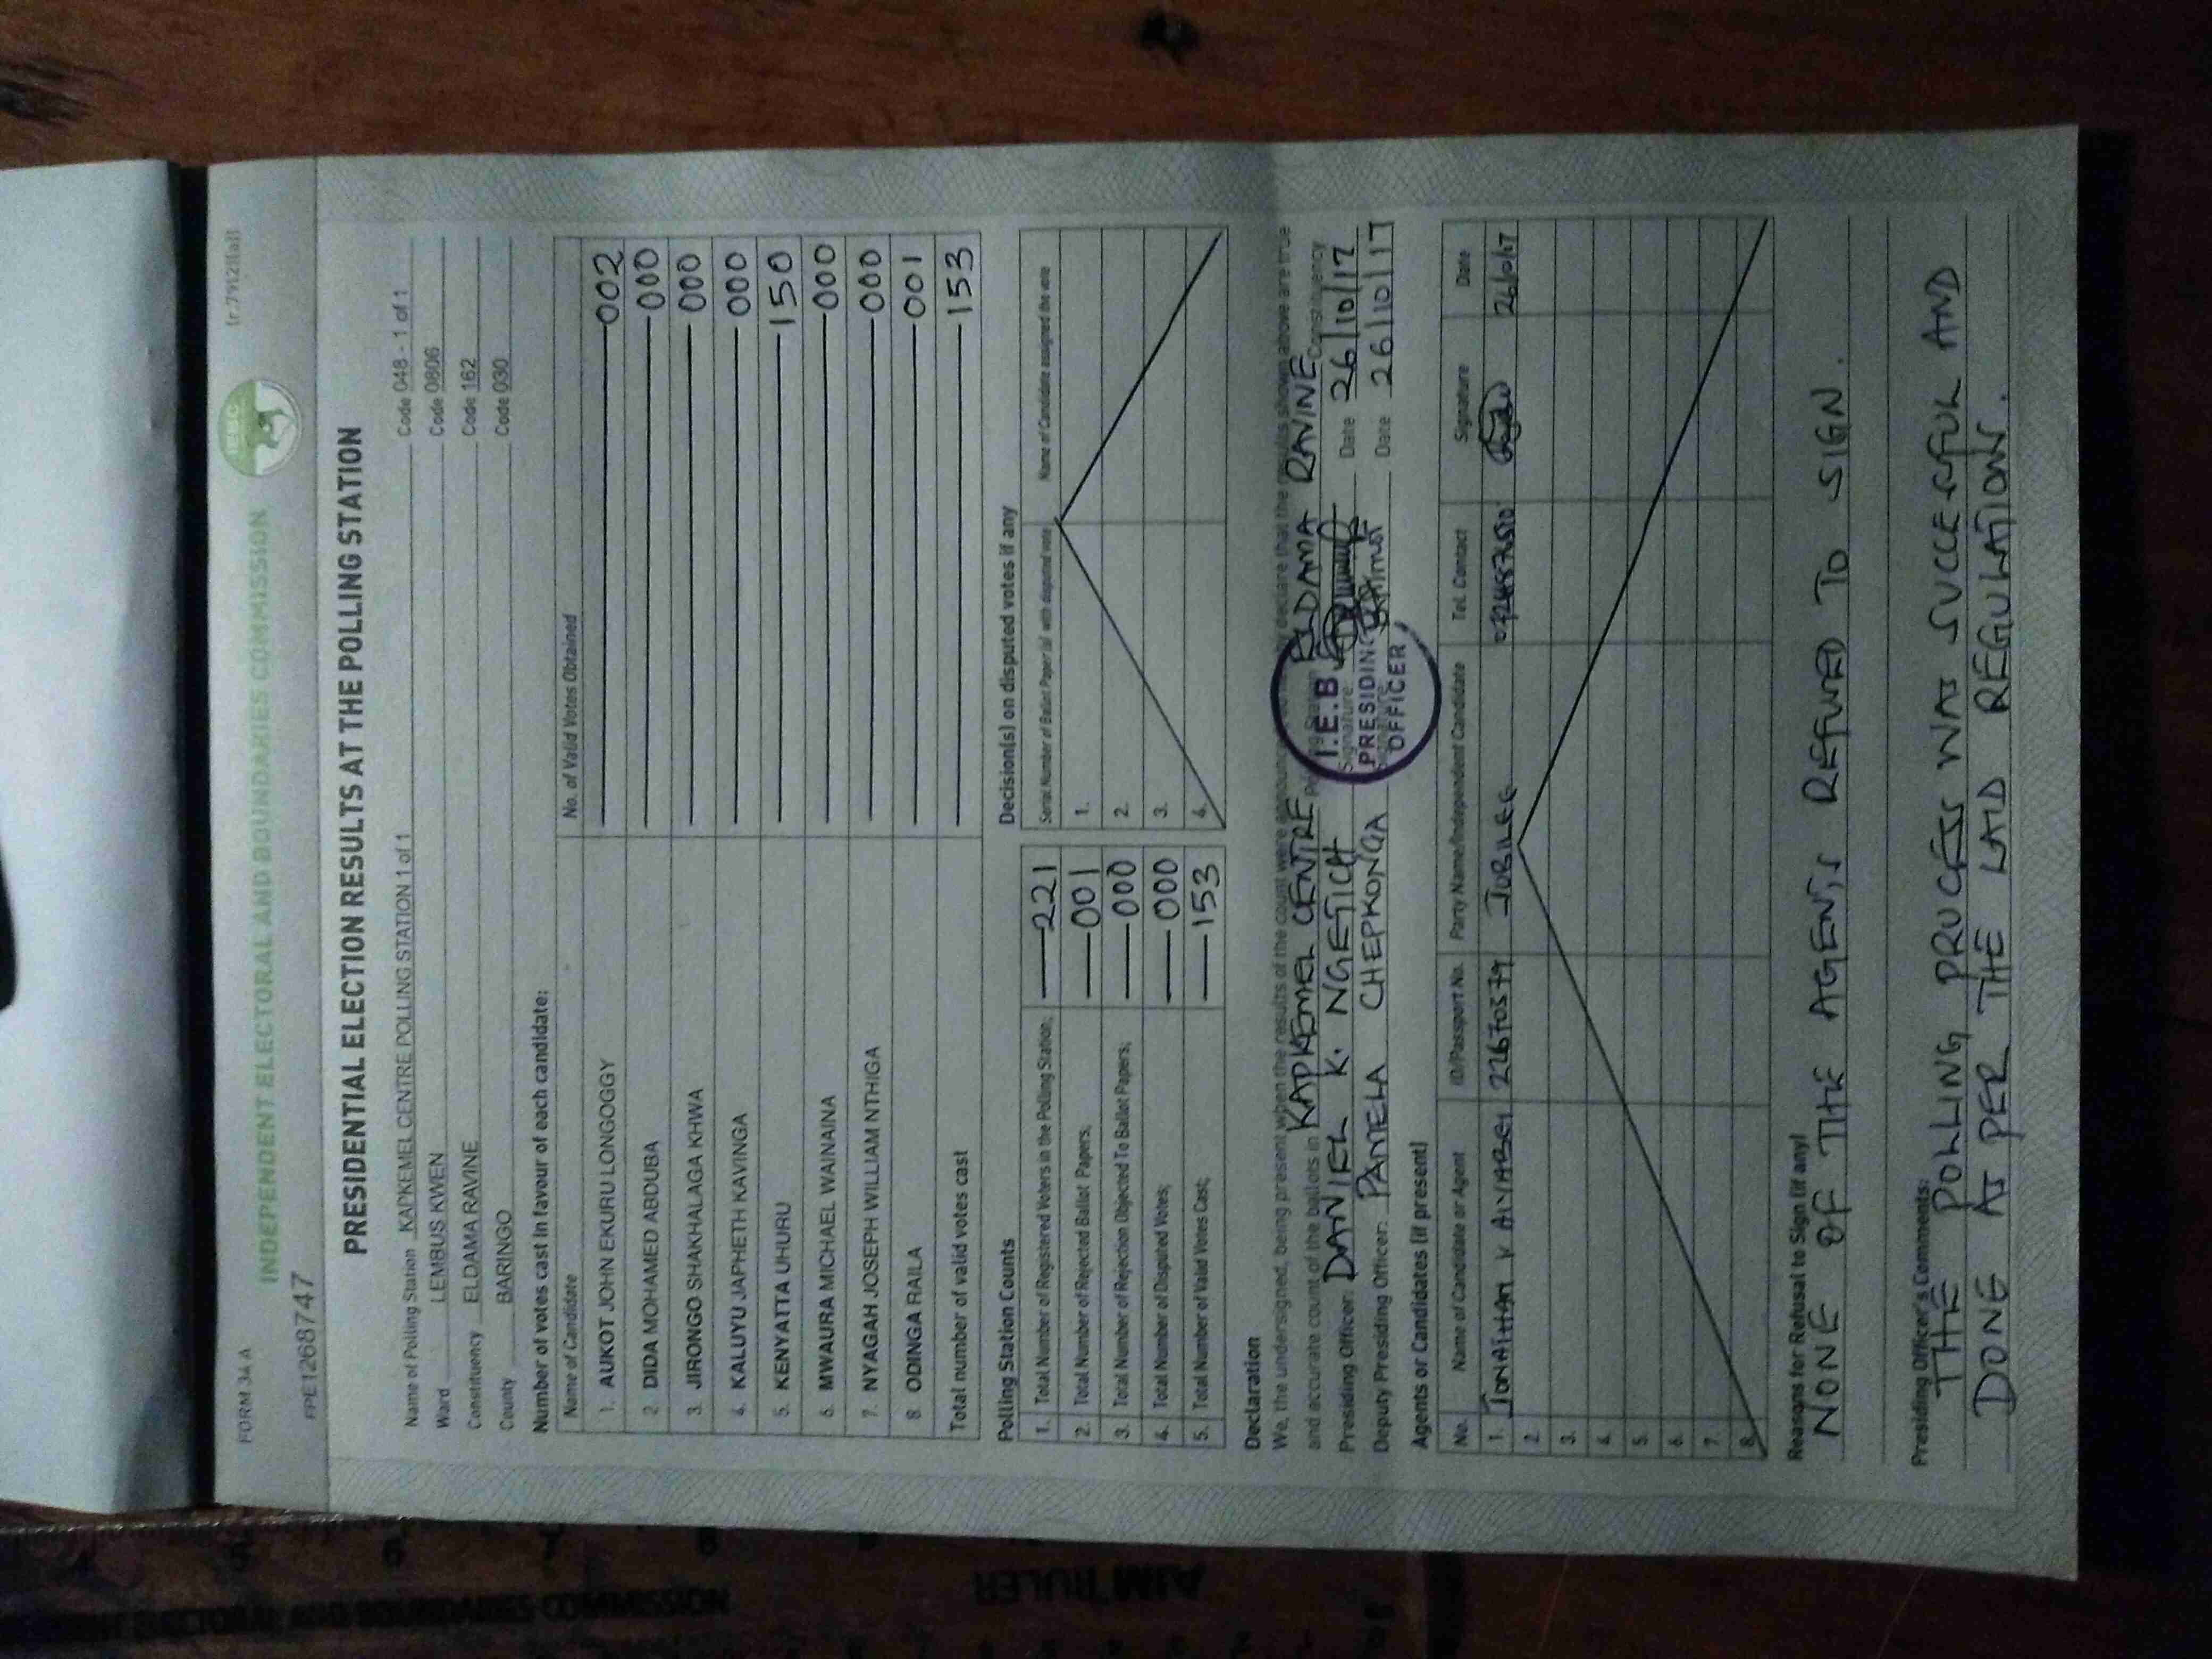 FORM 34 A
(r.79(2)(a))
INDEPENDENT ELECTORAL AND BOUNDARIES COMMISSION
IEBC
FPE1268747
PRESIDENTIAL ELECTION RESULTS AT THE POLLING STATION
Name of Polling Station KAPKEMEL CENTRE POLLING STATION 1 of 1 Code 048 - 1 of 1
Ward LEMBUS KWEN Code 0806
Constituency ELDAMA RAVINE Code 162
County BARINGO Code 030
Number of votes cast in favour of each candidate:
Name of Candidate No. of Valid Votes Obtained
1. AUKOT JOHN EKURU LONGOGGY 002
2 DIDA MOHAMED ABDUBA 000
3. JIRONGO SHAKHALAGA KHWA 000
4. KALUYU JAPHETH KAVINGA 000
5. KENYATTA UHURU 150
6. MWAURA MICHAEL WAINAINA 000
7. NYAGAH JOSEPH WILLIAM NTHIGA 000
8. ODINGA RAILA 001
Total number of valid votes cast 153
Polling Station Counts
1. Total Number of Registered Voters in the Polling Station; 221
2. Total Number of Rejected Ballot Papers; 001
3. Total Number of Rejection Objected To Ballot Papers; 000
4. Total Number of Disputed Votes; 000
5. Total Number of Valid Votes Cast; 153
Decision(s) on disputed votes if any
Serial Number of Ballot Paper (s) with disputed vote Name of Candidate assigned the vote
1.
2.
3.
4.
Declaration
We, the undersigned, being present when the results of the count were declare that the results shown above are true
and accurate count of the ballots in KAPKEMEL CENTRE ELDAMA RAVINE Constituency
Presiding Officer: DANIEL K. NGETICH Signature Date 26/10/17
Deputy Presiding Officer: PAMELA CHEPKONGA Date 26/10/17
I.E.B
PRESIDING
OFFICER
Agents or Candidates (if present)
No. Name of Candidate or Agent ID/Passport No. Party Name/Independent Candidate Tel. Contact Signature Date
1. JONATHAN K 22670579 JUBILEE
2.
3.
4.
5.
6.
7.
8.
Reasons for Refusal to Sign (if any)
NONE OF THE AGENTS REFUSED TO SIGN.
Presiding Officer's Comments:
THE POLLING PROCESS WAS SUCCESSFUL AND
DONE AS PER THE LAID REGULATIONS.
AIM RULER